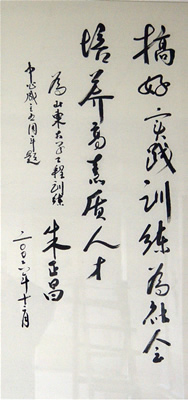 搞好实践训练为社会
培养高素质人才
为山东大学工程训练
中心成立五周年题
朱正昌
二〇〇六年十二月